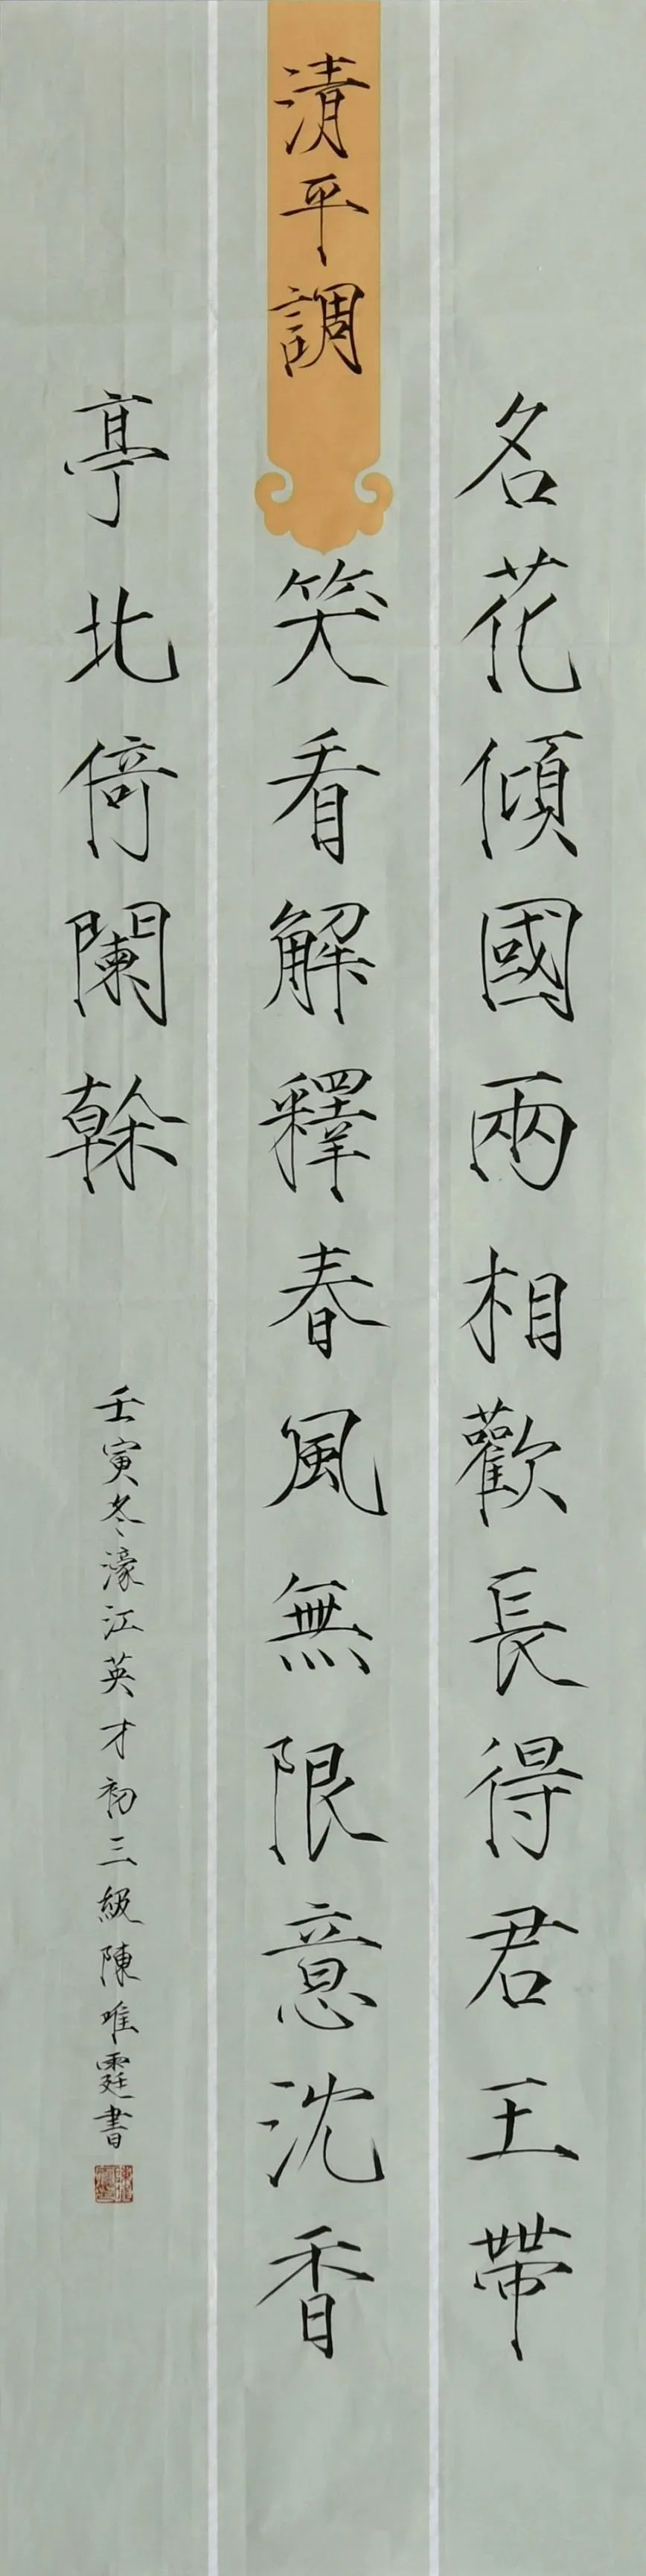 清平調
名花傾國兩相歡長得君王帶
笑看解釋春風無限意沈香
亭北倚闌榦
壬寅冬濠江英才初三級陳唯霆書